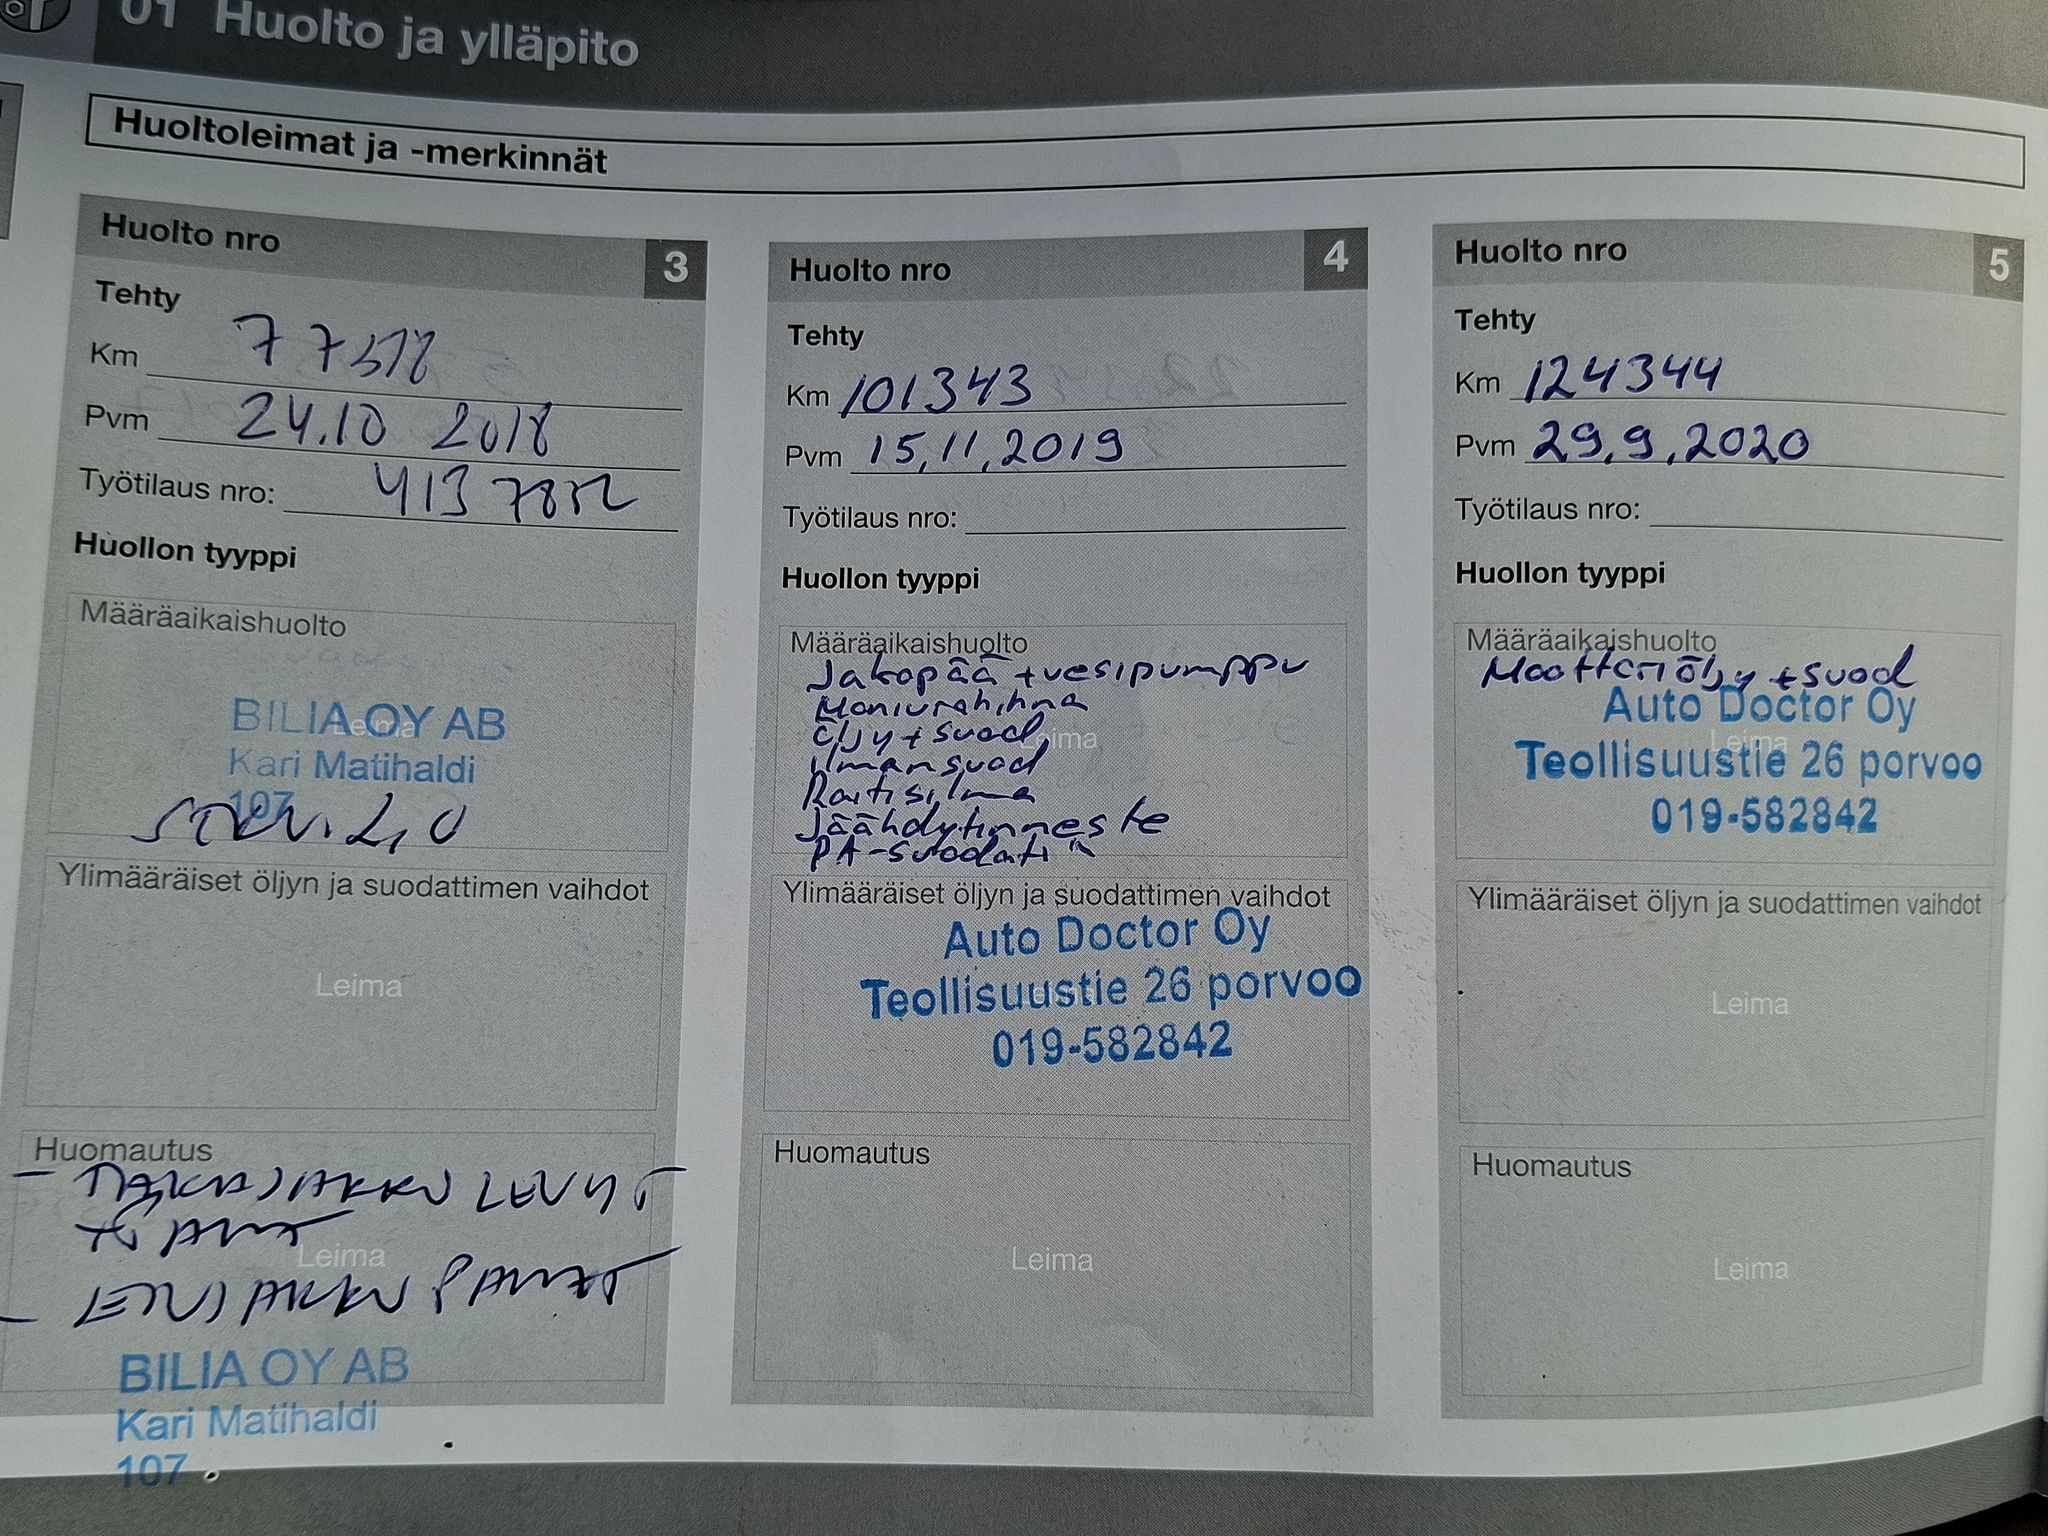 01 Huolto ja ylläpito
Huoltoleimat ja -merkinnät
Huolto nro 3
Tehty
Km 77518
Pvm 24.10 2018
Työtilaus nro: 413
Huollon tyyppi
Määräaikaishuolto
Leima
BILIA OY AB
Kari Matihaldi
107
2,0
Ylimääräiset öljyn ja suodattimen vaihdot
Leima
Huomautus
- TAKAJARRU LEVYT
Leima
- ETUJARRU PALAT
BILIA OY AB
Kari Matihaldi
107
Huolto nro 4
Tehty
Km 101343
Pvm 15.11.2019
Työtilaus nro:
Huollon tyyppi
Määräaikaishuolto
Jakopää + vesipumppu
Moniurahihna
öljy + suod
Leima
ilmansuod
Raitisilma
Jäähdytinneste
PA-suodatin
Ylimääräiset öljyn ja suodattimen vaihdot
Auto Doctor Oy
Teollisuustie 26 porvoo
019-582842
Huomautus
Leima
Huolto nro 5
Tehty
Km 124344
Pvm 29.9.2020
Työtilaus nro:
Huollon tyyppi
Määräaikaishuolto
Moottoriöljy + suod
Auto Doctor Oy
Leima
Teollisuustie 26 porvoo
019-582842
Ylimääräiset öljyn ja suodattimen vaihdot
Leima
Huomautus
Leima